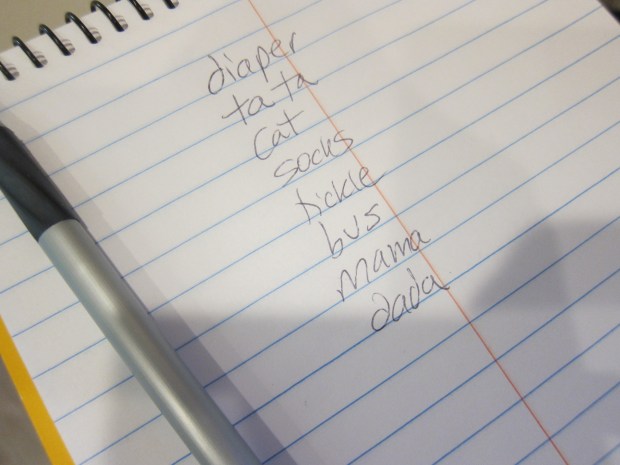 diaper
ta ta
cat
socks
tickle
bus
mama
dada